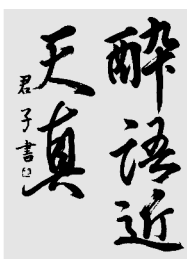 醉語近
天真
君子書